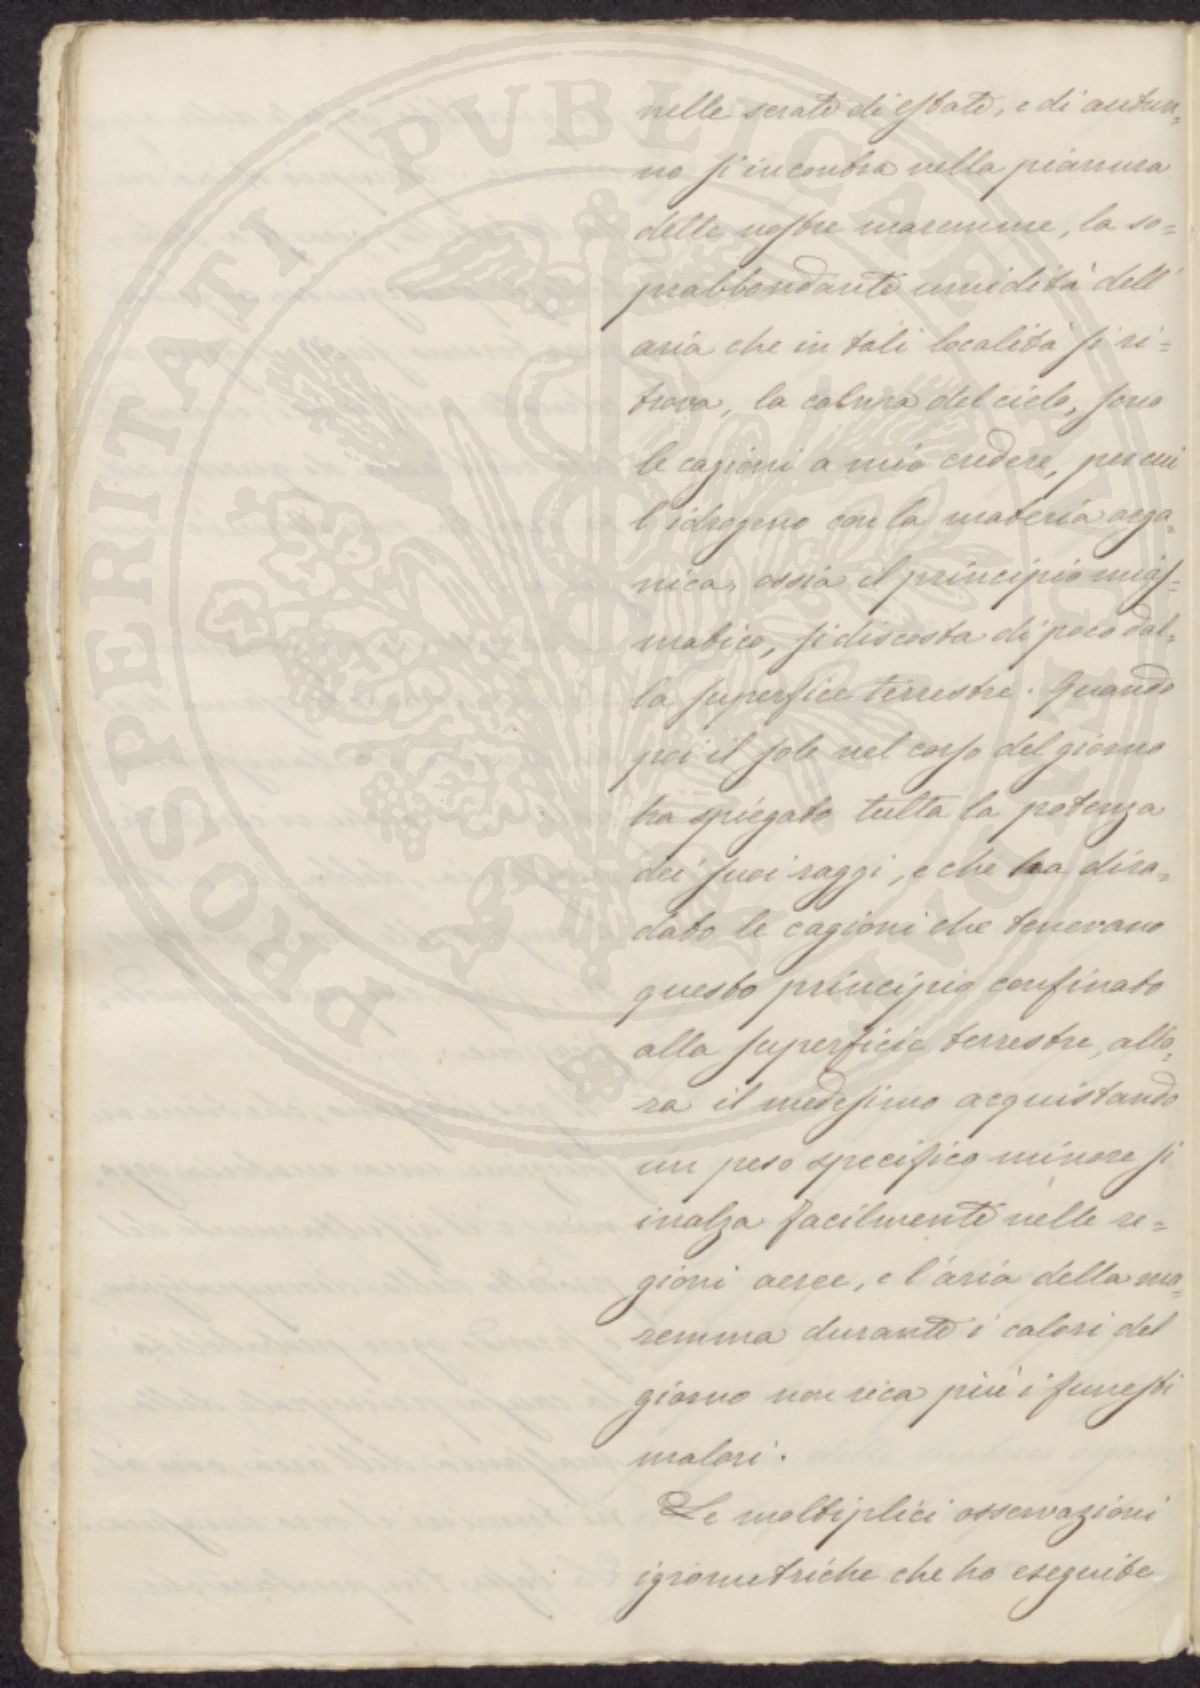 nelle serate di estate, e di autun=
no si incontra nella pianura
delle nostre maremme, la so=
prabbondante umidità dell'
aria che in tali località si ri=
trova, la calma del cielo, sono
le cagioni a mio credere, per cui
l'idrogeno con la materia orga=
nica, ossia il principio mias=
matico, si discosta di poco dal=
la superfice terrestre. Quando
poi il sole nel corso del giorno
ha spiegato tutta la potenza
dei suoi raggi, e che ha dira=
dato le cagioni che tenevano
questo principio confinato
alla superficie terrestre, allo=
ra il medesimo acquistando
un peso specifico minore si
inalza facilmente nelle re=
gioni aeree, e l'aria della ma=
remma durante i calori del
giorno non reca più i funesti
malori.
Le moltiplici osservazioni
igrometriche che ho eseguite
PROSPERITATI PVBLICAE